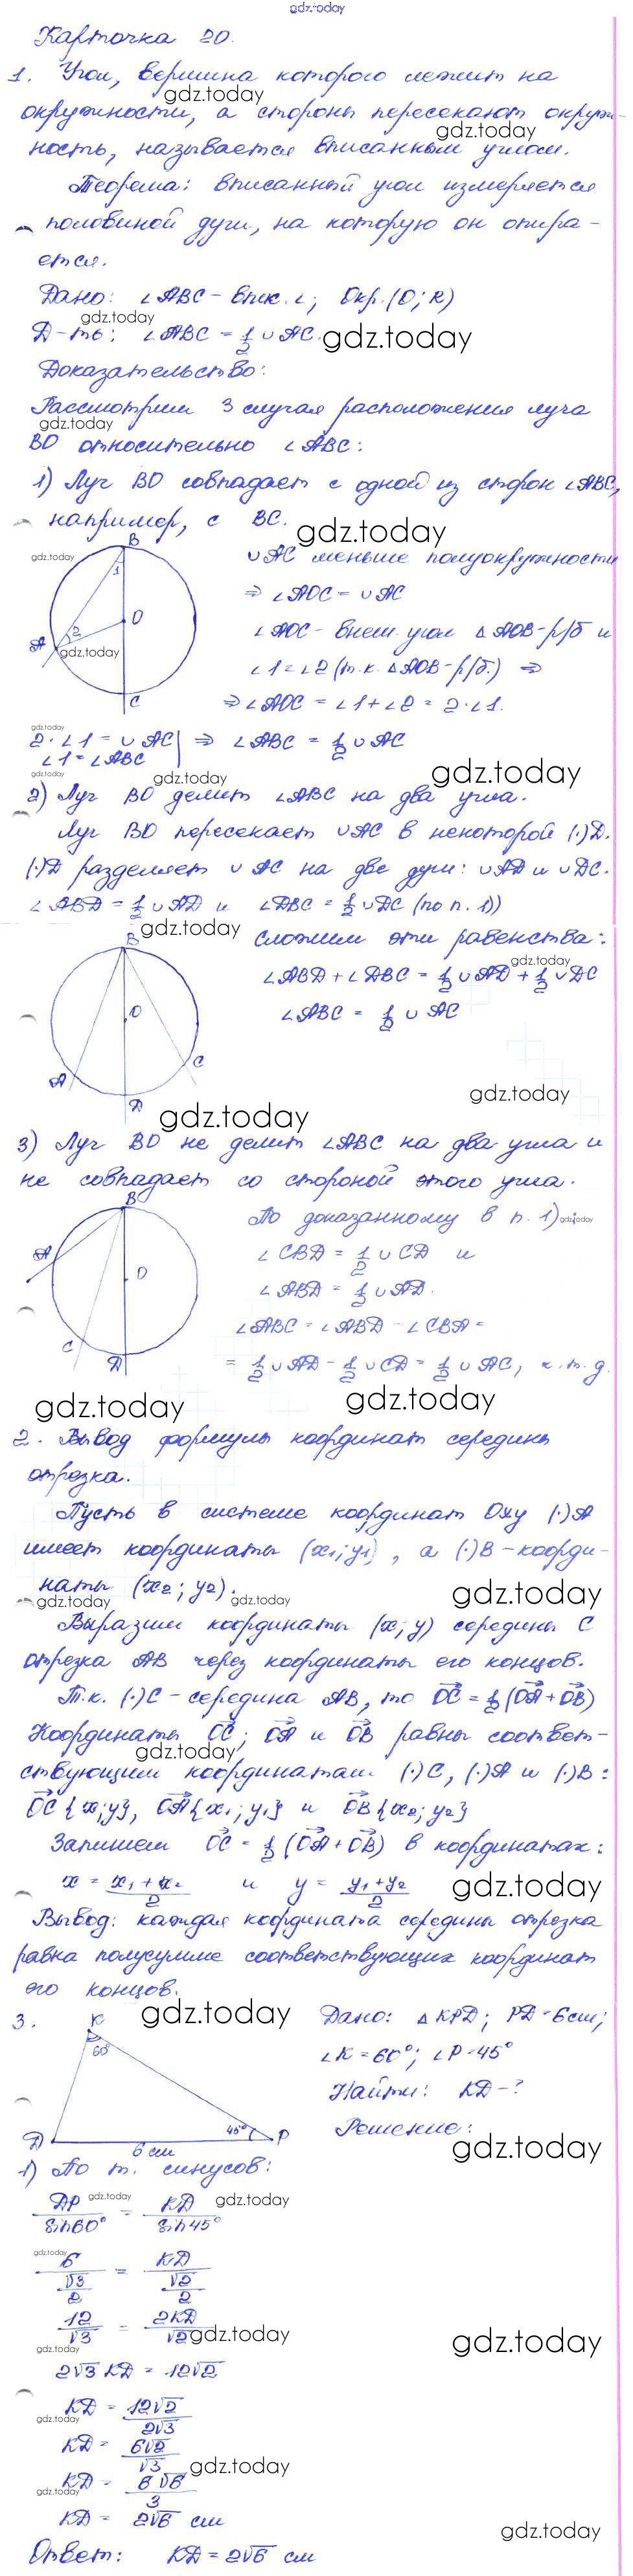 gdz.today
Карточка 20.
1. Угол, вершина которого лежит на
окружности, а стороны пересекают окруж-
ность, называется вписанным углом.
Теорема: вписанный угол измеряется
половиной дуги, на которую он опира-
ется.
Дано: ∠ABC - впис. ∠; Окр.(O; R)
Д-ть: ∠ABC = 1/2 ∪AC.
Доказательство:
Рассмотрим 3 случая расположения луча
BO относительно ∠ABC:
1) Луч BO совпадает с одной из сторон ∠ABC,
например, с BC.
∪AC меньше полуокружности
⇒ ∠AOC = ∪AC
∠AOC - внеш. угол △AOB - р/б и
∠1 = ∠2 (т.к. △AOB - р/б.) ⇒
⇒ ∠AOC = ∠1 + ∠2 = 2·∠1.
2·∠1 = ∪AC | ⇒ ∠ABC = 1/2 ∪AC
∠1 = ∠ABC
2) Луч BO делит ∠ABC на два угла.
Луч BO пересекает ∪AC в некоторой (·)D.
(·)D разделяет ∪AC на две дуги: ∪AD и ∪DC.
∠ABD = 1/2 ∪AD и ∠DBC = 1/2 ∪DC (по п. 1))
Сложим эти равенства:
∠ABD + ∠DBC = 1/2 ∪AD + 1/2 ∪DC
∠ABC = 1/2 ∪AC
3) Луч BO не делит ∠ABC на два угла и
не совпадает со стороной этого угла.
По доказанному в п. 1):
∠CBD = 1/2 ∪CD и
∠ABD = 1/2 ∪AD.
∠ABC = ∠ABD - ∠CBD =
= 1/2 ∪AD - 1/2 ∪CD = 1/2 ∪AC, ч.т.д.
2. Вывод формулы координат середины
отрезка.
Пусть в системе координат Oxy (·)A
имеет координаты (x1; y1), а (·)B - коорди-
наты (x2; y2).
Выразим координаты (x; y) середины C
отрезка AB через координаты его концов.
Т.к. (·)C - середина AB, то OC = 1/2 (OA + OB)
Координаты OC; OA и OB равны соответ-
ствующим координатам (·)C, (·)A и (·)B:
OC{x;y}, OA{x1; y1} и OB{x2; y2}
Запишем OC = 1/2 (OA + OB) в координатах:
x = (x1 + x2)/2 и y = (y1 + y2)/2
Вывод: каждая координата середины отрезка
равна полусумме соответствующих координат
его концов.
3. K 60° D 45° P 6 см
Дано: △KPD; PD = 6 см;
∠K = 60°; ∠P = 45°
Найти: KD - ?
Решение:
1) По т. синусов:
DP/sin60° = KD/sin45°
6/(√3/2) = KD/(√2/2)
12/√3 = 2KD/√2
2√3 KD = 12√2
KD = 12√2/2√3
KD = 6√2/√3
KD = 6√6/3
KD = 2√6 см
Ответ: KD = 2√6 см